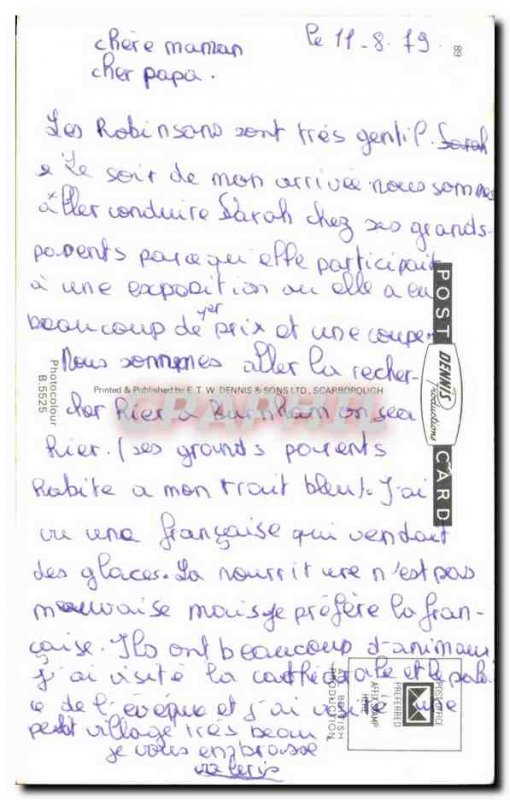 le 11-8.79.
chère maman
cher papa.
Les Robinsons sont très gentil. Sarah
e Le soir de mon arrivée nous sommes
aller conduire Sarah chez ses grands-
parents parce qui elle participait
à une exposition ou elle a eu
beaucoup de 1er prix et une coupe.
Nous sommes aller la recher-
cher hier a Burnham on sea
hier. (ses grands parents
habite a mon trait bleut. J'ai
vu une française qui vendait
des glaces. La nourriture n'est pas
mauvaise mais je préfère la fran-
çaise. Ils ont beaucoup d'animau
j'ai visité la cathédrale et le palai
e de l'évêque et j'ai une
petit village très beau
je vous embrasse
89
POST CARD
DENNIS
Productions
Photocolour
B.5525
Printed & Published by E. T. W. DENNIS & SONS LTD., SCARBOROUGH
POST OFFICE
PREFERRED
AFFIX STAMP
HERE
A BRITISH
PRODUCTION